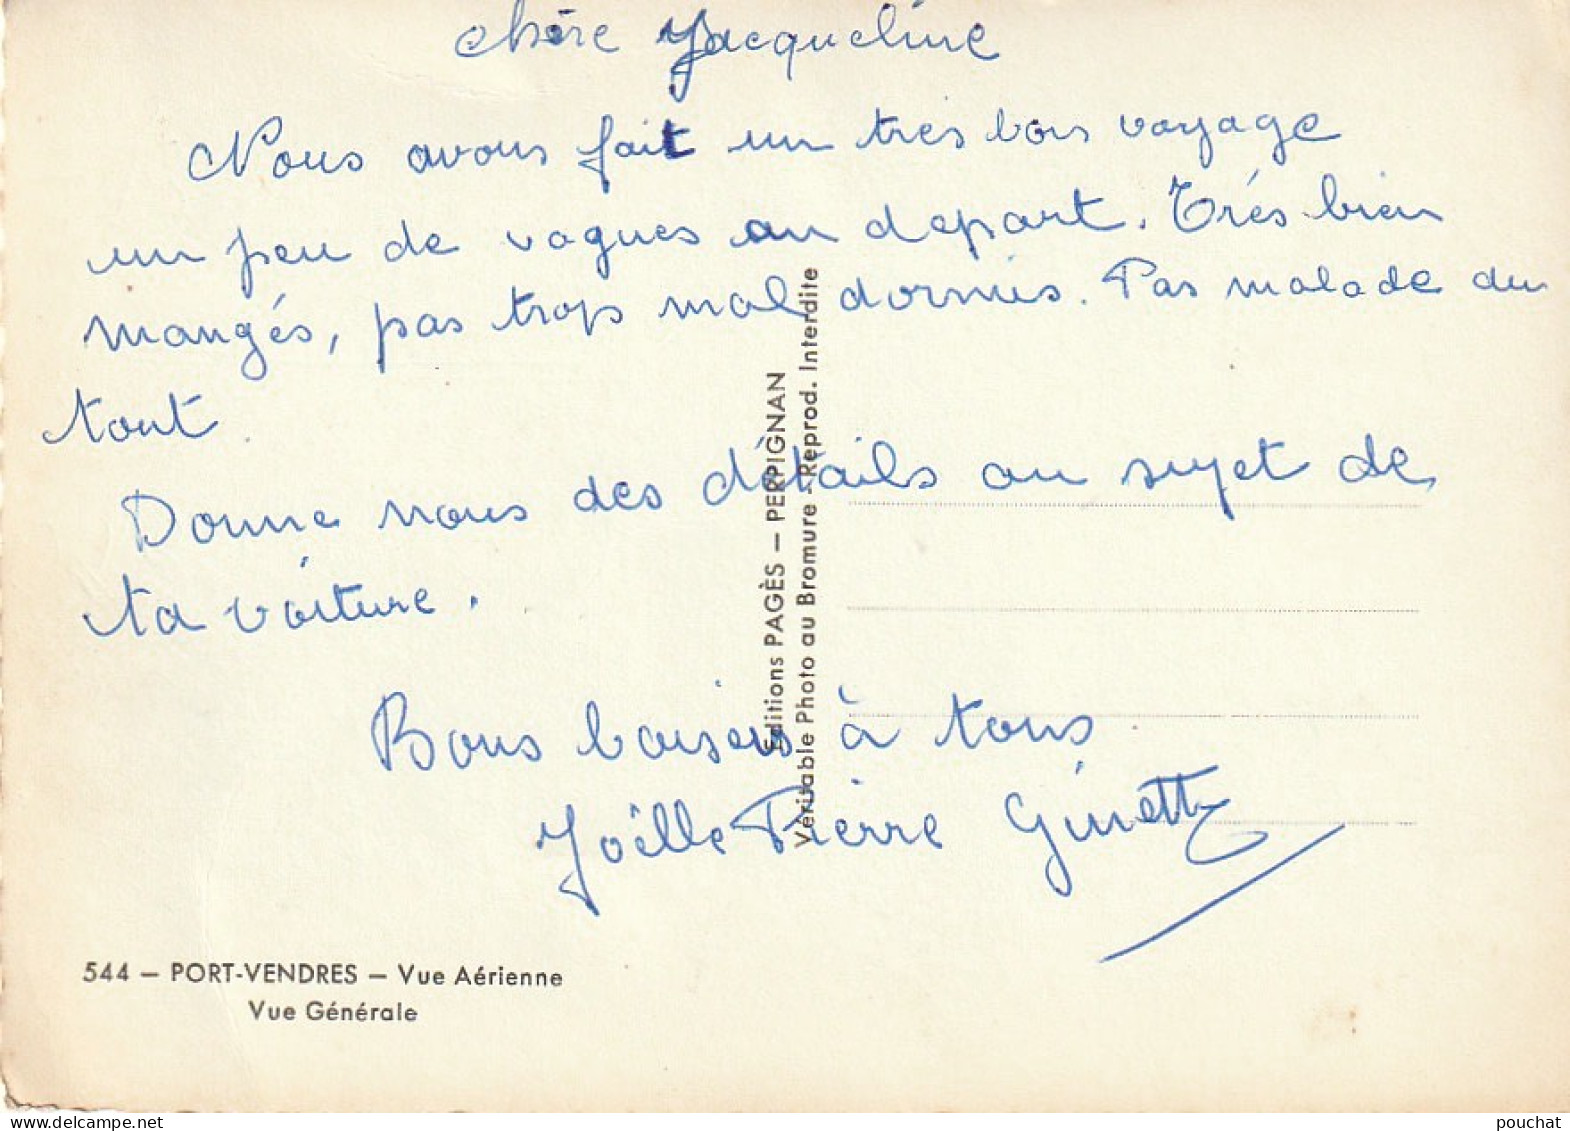 Chère Jacqueline
Nous avons fait un très bon voyage
un peu de vagues au depart. Trés bien
mangés, pas trop mal dormis. Pas malade du
tout.
Donne nous des détails au sujet de
ta voiture.
Bons baisers à tous
Joëlle Pierre Ginette
Editions PAGÈS — PERPIGNAN
Véritable Photo au Bromure - Reprod. Interdite
544 — PORT-VENDRES — Vue Aérienne
Vue Générale
pouchat